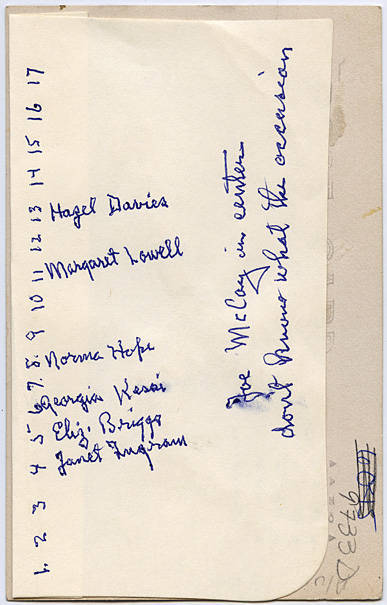 1. 2 3 4 5 6 7. 8. 9 10 11 12 13 14 15 16 17
Hazel Davies
Margaret Lowell
Norma Hope
Georgia Kasai
Eliz. Briggs
Janet Ingram
Joe McCoy in center
don't know what the occasion
9733